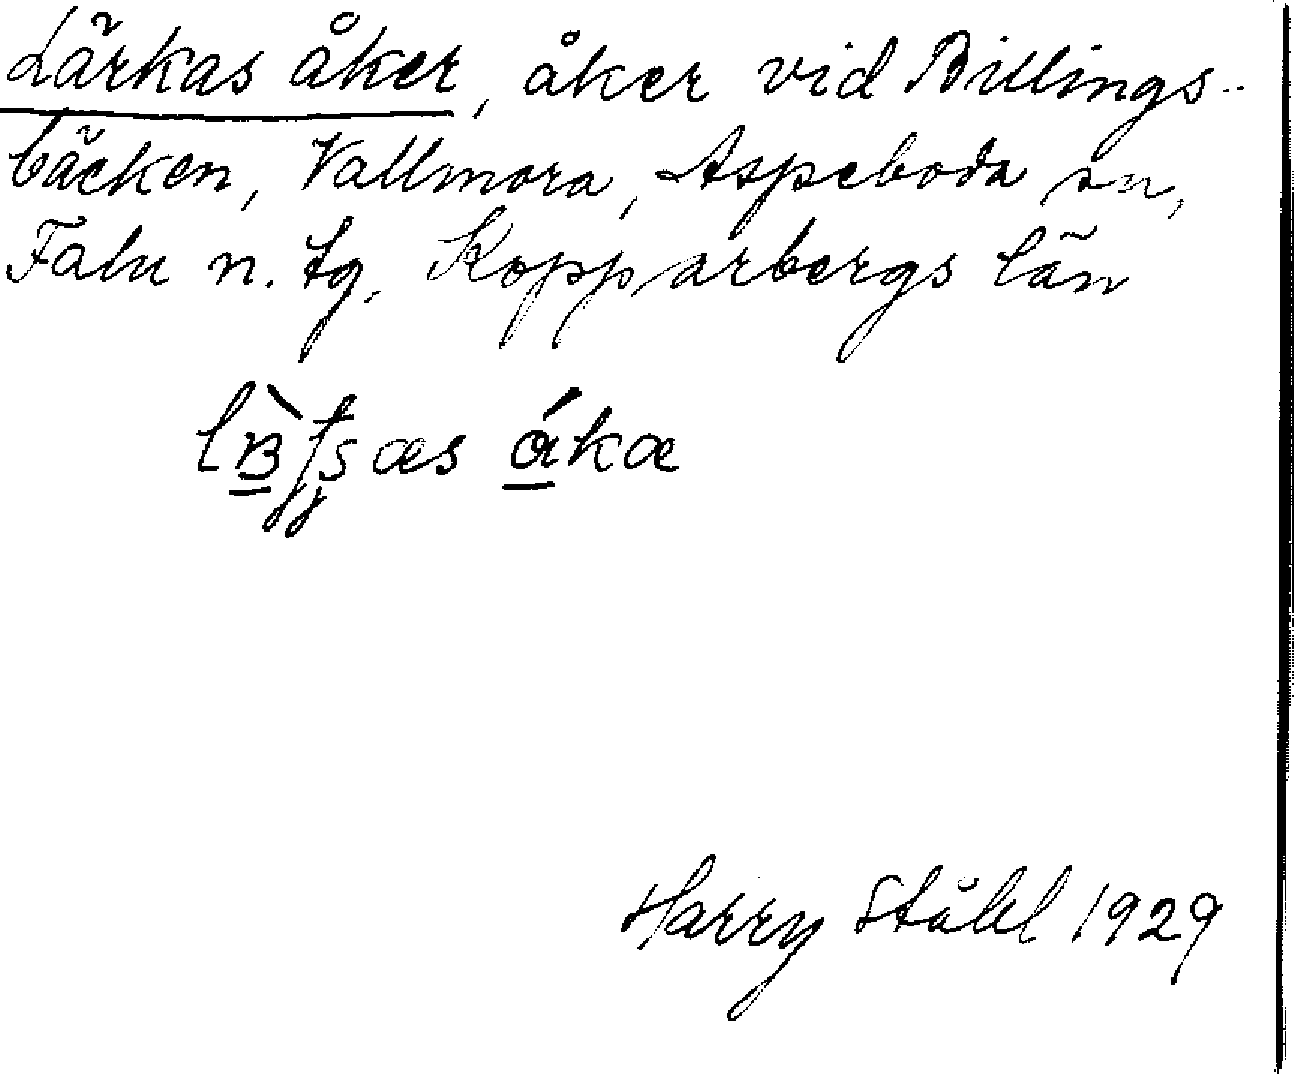 Lärkas åker, åker vid Billings-
bäcken, Vallmora, Aspeboda sn,
Falu n. tg. Kopparbergs län
áka
Harry Ståhl 1929